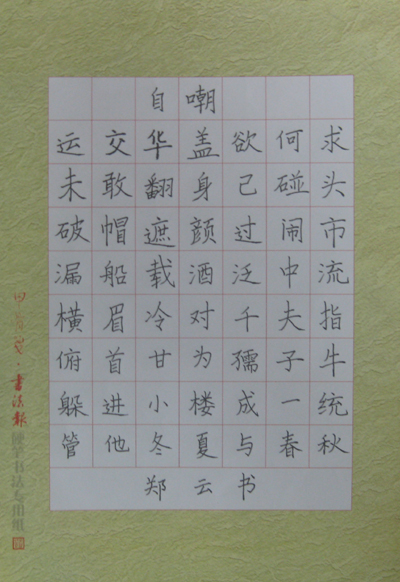 自嘲
运交华盖欲何求
未敢翻身己碰头
破帽遮颜过闹市
漏船载酒泛中流
横眉冷对千夫指
俯首甘为孺子牛
躲进小楼成一统
管他冬夏与春秋
郑云书
书法报
硬笔书法专用纸